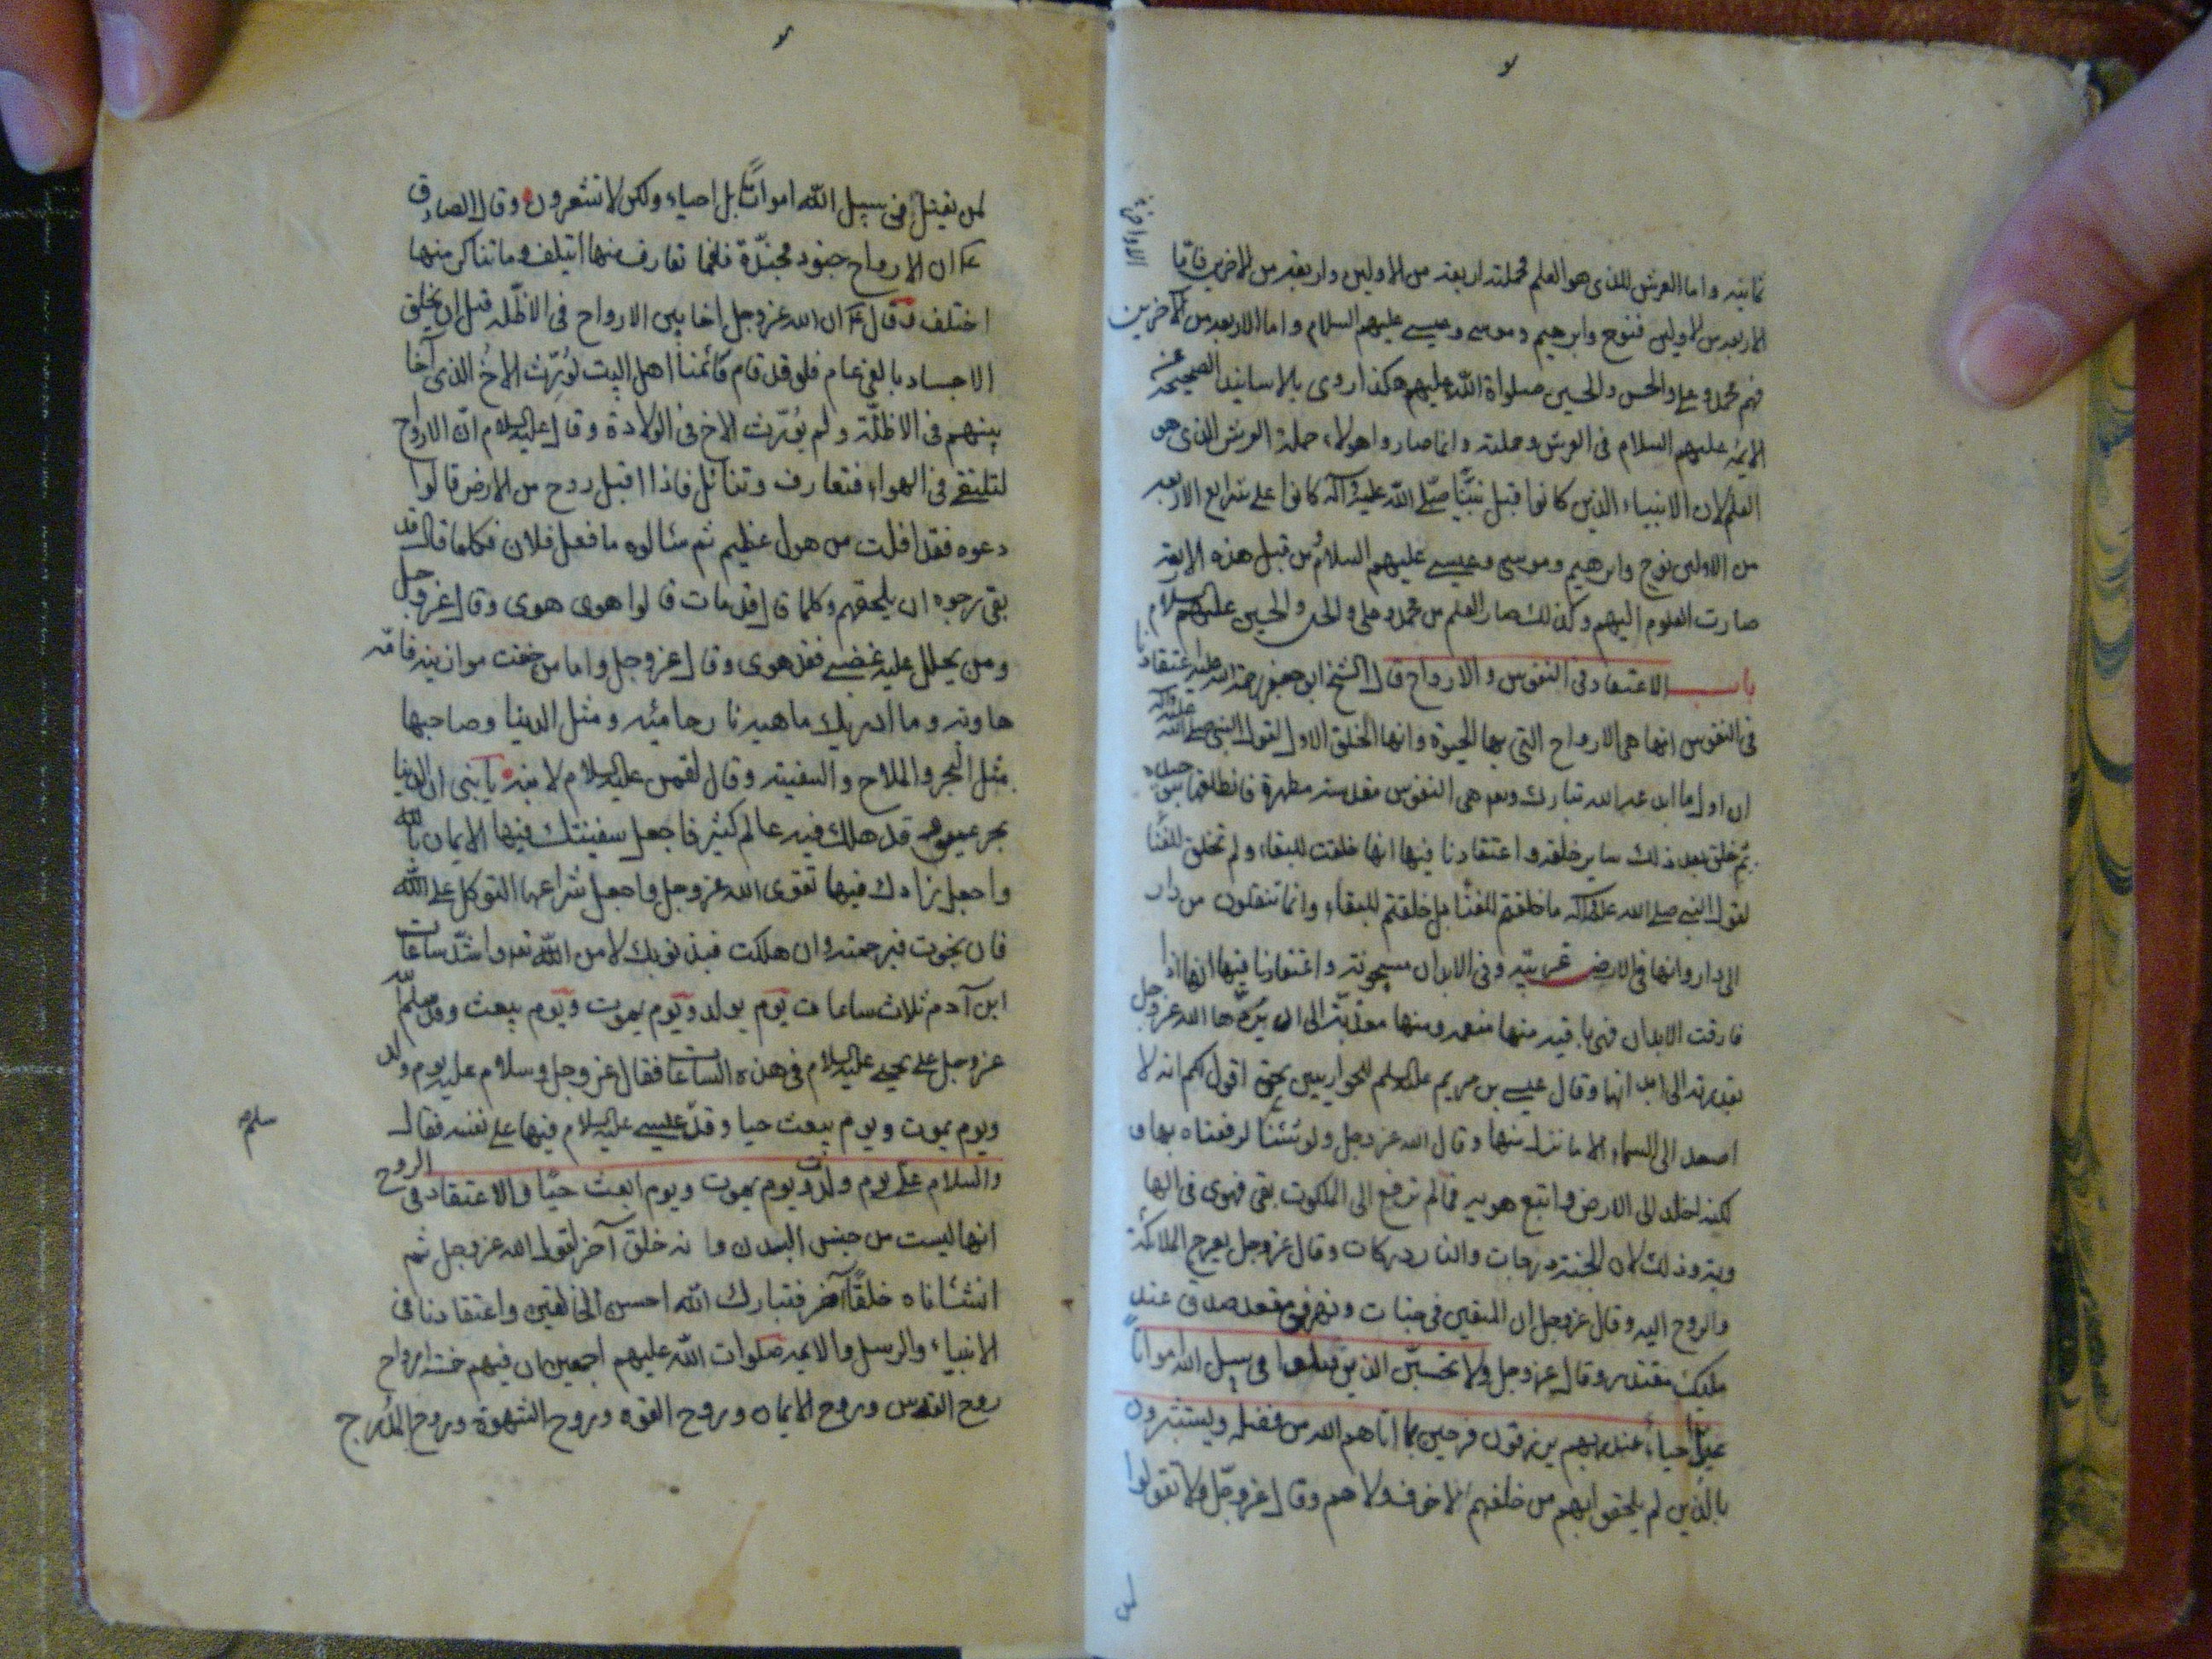 ثمانية واما العرش الذى هو العلم فحملته اربعة من الاولين واربعة من الاخرين فامّا
الاربعة من الاولين فنوح وابرهيم وموسى وعيسى عليهم السلام واما الاربعة من الاخرين
فهم محمد وعلى والحسن والحسين صلواة اللّه عليهم هكذا روى بالاسانيد الصحيحة عن
الايمة عليهم السلام فى العرش وحملته وانما صار واهولاء حملة العرش الذى هو
العلم لان الانبياء الذين كانوا قبل نبيّنا صلّى اللّه عليه وآله كانوا على شرايع الاربعه
من الاولين نوح وابرهيم وموسى وعيسى عليهم السلام من قبل هذه الاربعة
صارت العلوم اليهم وكذلك صار العلم من محمد وعلى والحسن والحسين عليهم السلام
باب الاعتقاد فى النفوس والارواح قال الشيخ ابو جعفر رحمة الله عليه اعتقادنا
فى النفوس انها هى الارواح التى بها الحيوة وانها الخلق الاول لقول النبى صلى الله عليه وآله
ان اول ما ابدعه الله تبارك وتعا هى النفوس مقدسة مطهرة فانطلقها بتوحيده
ثم خلق بعد ذلك ساير خلقه واعتقادنا فيها انها خلقت للبقاء ولم تخلق للفنا
لقول النبى صلى الله عليه وآله ما خلقتم للفنا بل خلقتم للبقاء وانما تنقلون من دار
الى دار وانها فى الارض غريبة وفى الابدان مسجونة واعتقادنا فيها انها اذا
فارقت الابدان فهى باقية منها منعمة ومنها معذبة الى ان يردّها الله عز وجل
بقدرته الى ابدانها وقال عيسى بن مريم عليه السلم للحواريين بحق اقول لكم انه لا
اصعد الى السماء الا ما نزل منها وقال الله عز وجل ولو شئنا لرفعناه بها و
لكنه اخلد الى الارض واتبع هويه فما لم ترفع الى الملكوت بقى فهوى فى الها
وية وذلك لان الجنة درجات والنار دركات وقال عز وجل يعرج الملائكة
والروح اليه وقال عز وجل ان المتقين فى جنات ونهر فى مقعد صدق عند
مليك مقتدر وقال عز وجل ولا تحسبنّ الذين قتلوا فى سبيل الله امواتا
بل احياء عند ربهم يرزقون فرحين بما اتاهم الله من فضله ويستبشرون
بالذين لم يلحقوا بهم من خلفهم الا خوف ولا هم وقال عز وجل ولا تقولوا
لمن يقتل فى سبيل اللّه امواتًا بل احياء ولكن لا تشعرون وقال الصادق
ع ان الارواح جنود مجنّدة فلما تعارف منها ائتلف وما تناكر منها
اختلف وقال ع ان الله عز وجل اخا بين الارواح فى الاظلّة قبل ان يخلق
الاجساد بالفى عام فلو قد قام قائمنا اهل البيت لوُرّث الاخُ الذى آخا
بينهم فى الاظلّة ولم يُورّث الاخ فى الولادة وقال عليه السلام انّ الارواح
لتلتقى فى الهواء فتعارف وتسائل فاذا اقبل روح من الارض قالوا
دعوه فقد افلت من هول عظيم ثم سئالوه ما فعل فلان فكلما قال قد
بقى رجوه ان يلحقهم وكلما قال قد مات قالوا هوى هوى وقال عز وجل
ومن يحلل عليه غضبى فقد هوى وقال عز وجل واما من خفت موازينه فامّه
هاوية وما ادريك ماهيه نار حامية ومثل الدنيا وصاحبها
مثل البحر والملاح والسفينة وقال لقمن عليه السلام لابنه يا بنى ان الدنيا
بحر عميق قد هلك فيه عالم كثير فاجعل سفينتك فيها الايمان باللّه
واجعل زادك فيها تقوى الله عز وجل واجعل شراعها التوكل على اللّه
فان نجوت فبرحمته وان هلكت فبذنوبك لا من اللّه تعا واشدّ ساعات
ابن آدم ثلاث ساعات يوم يولد ويوم يموت ويوم يبعث وقد سلم اللّه
عز وجل على يحيى عليه السلام فى هذه الساعات فقال عز وجل وسلام عليه يوم ولد
ويوم يموت ويوم يبعث حيا وقد سلّم عيسى عليه السلام فيها على نفسه فقال
والسلام علىّ يوم ولدت ويوم يموت ويوم ابعث حيّا والاعتقاد فى الروح
انها ليست من جنس البدن وانه خلق آخر لقول الله عز وجل ثم
انشئاناه خلقًا آخر فتبارك اللّه احسن الخالقين واعتقادنا فى
الانبياء والرسل والايمة صلوات اللّه عليهم اجمعين ان فيهم خمسة ارواح
روح القدس وروح الايمان وروح القوه وروح الشهوة وروح المدرج